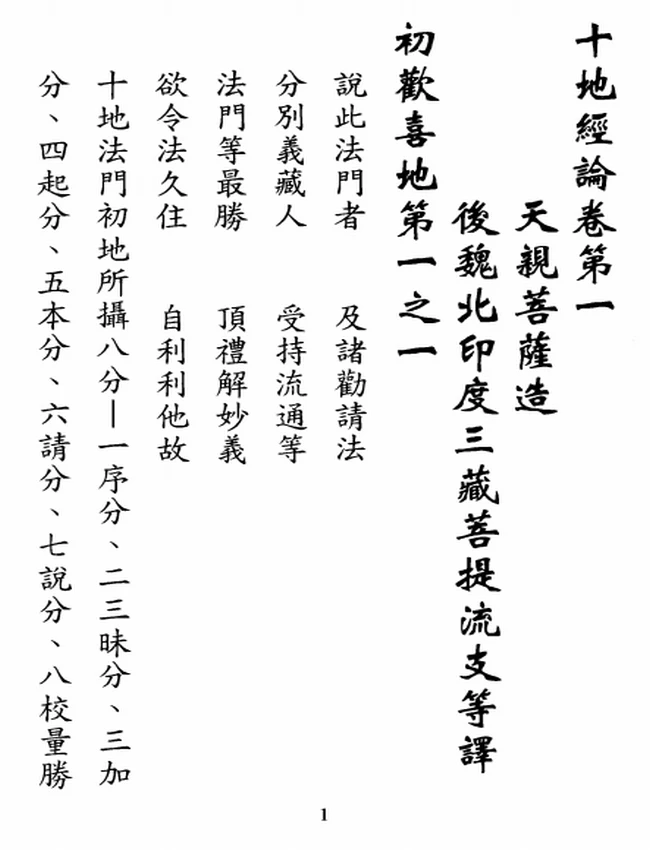 十地經論卷第一
天親菩薩造
後魏北印度三藏菩提流支等譯
初歡喜地第一之一
說此法門者　及諸勸請法
分別義藏人　受持流通等
法門等最勝　頂禮解妙義
欲令法久住　自利利他故
十地法門初地所攝八分—一序分、二三昧分、三加
分、四起分、五本分、六請分、七說分、八校量勝
1